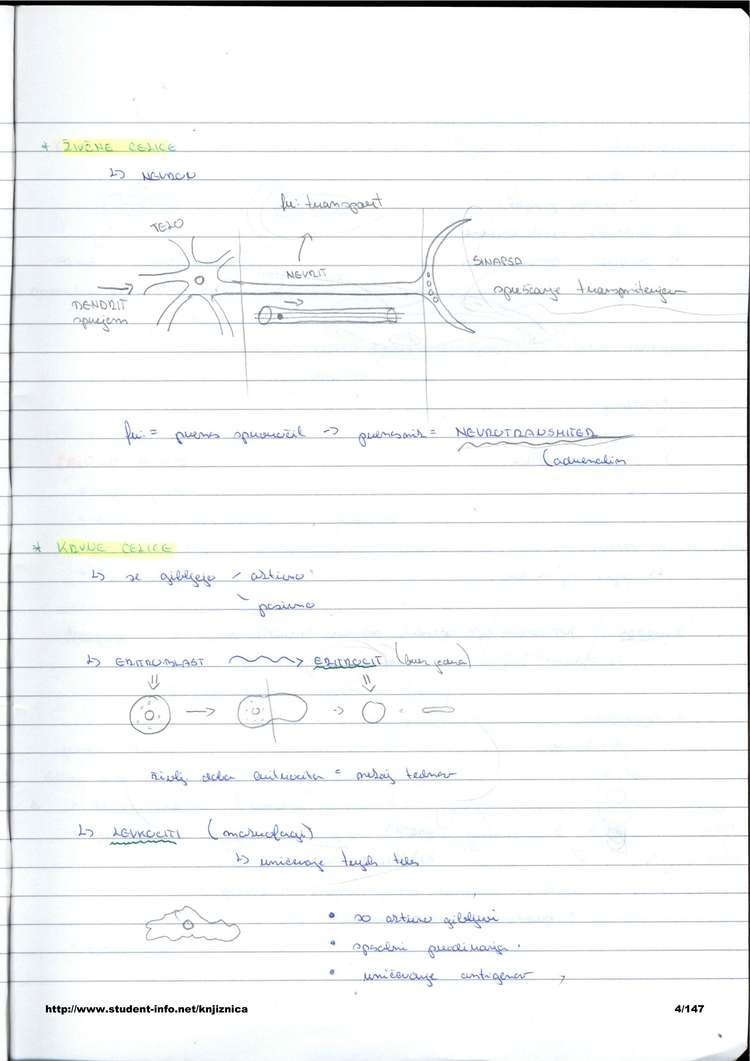 * ŽIVČNE CELICE
↳ NEVRON
fu: transport
TELO
NEVRIT
SINAPSA
DENDRIT
sprejem
spuščanje transmiterjem
fu: = prenos sporočil → prenosnik = NEVROTRANSMITER
(adrenalin
* KRVNE CELICE
↳ se gibljejo / aktivno
\ pasivno
↳ ERITROBLAST → ERITROCIT (brez jedra)
življ. doba eritrocita = nekaj tednov
↳ LEVKOCITI (makrofagi)
↳ uničevanje tujih teles
• so aktivno gibljivi
• sposobni prediranja
• uničevanje antigenov
http://www.student-info.net/knjiznica 4/147